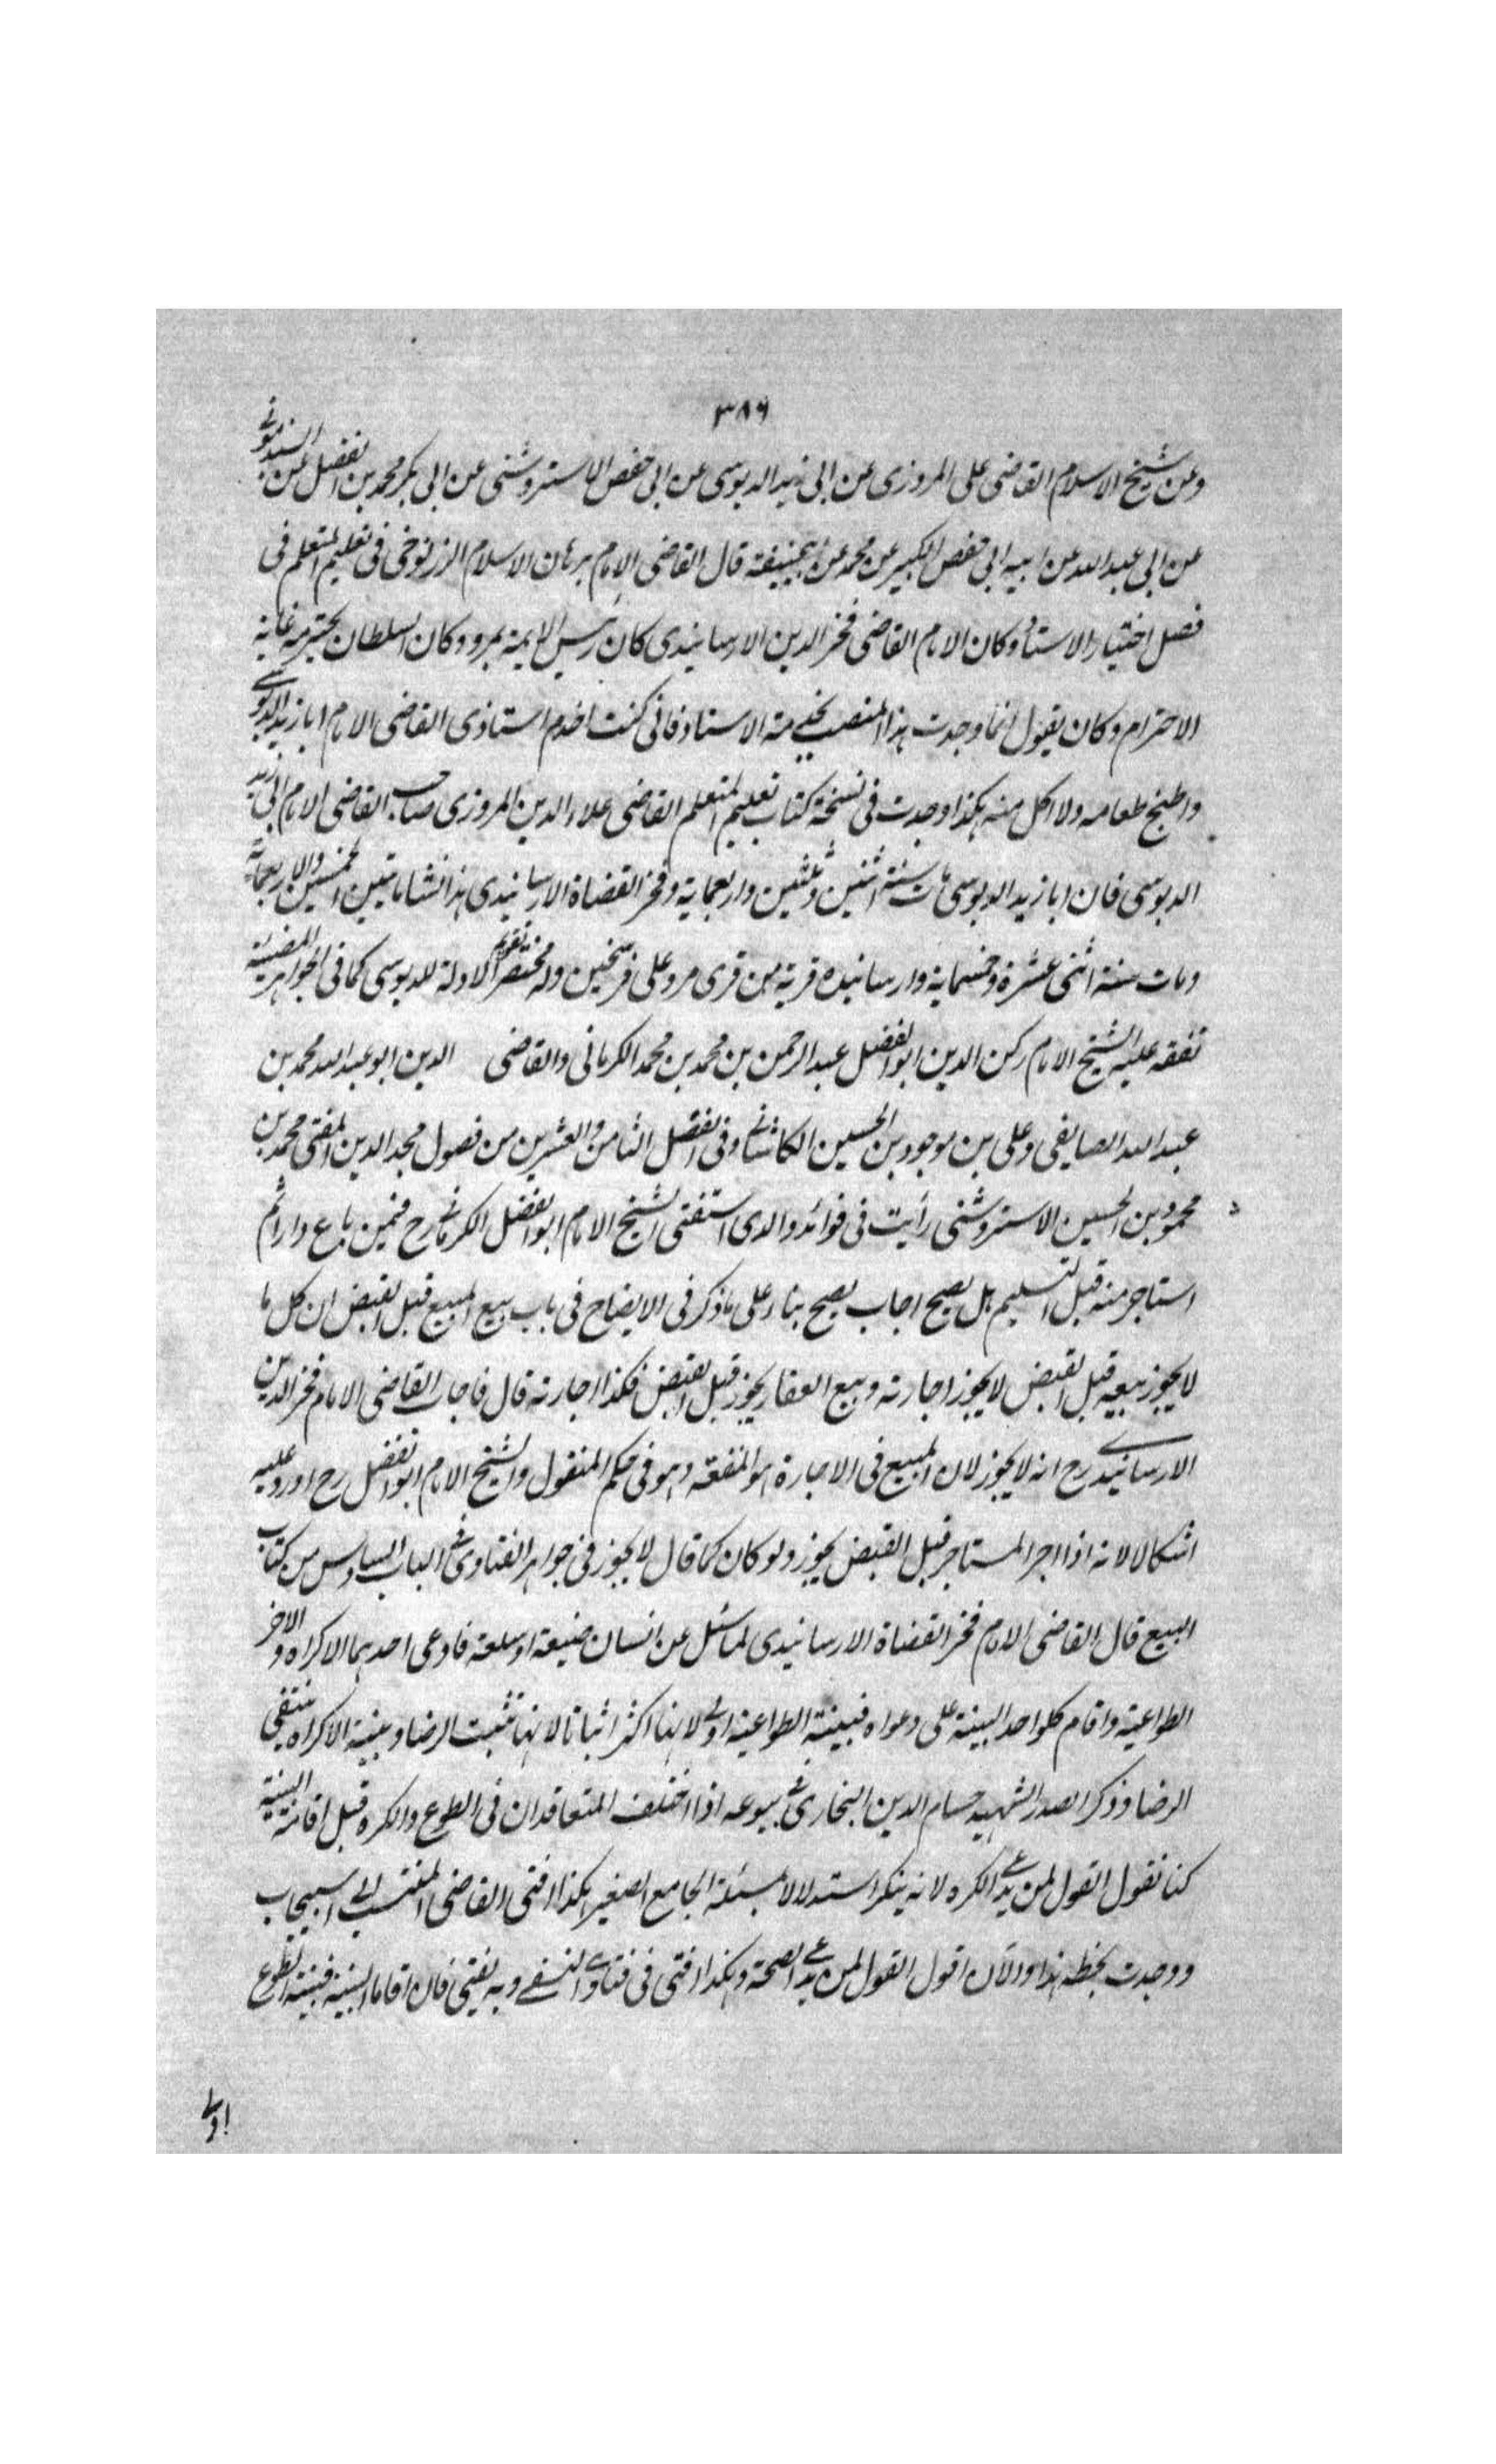 ٣٨٦
وعن شيخ الاسلام القاضى على المروزى عن ابى زيد الدبوسى عن ابى حفص الاستروشنى عن ابى بكر محمد بن الفضل عن السبذمونے
عن ابى عبد الله عن ابيه ابى حفص الكبير عن محمد عن ابيحنيفة قال القاضى الامام برهان الاسلام الزرنوخى فى تعليم المتعلم فى
فصل اختيار الاستاذ وكان الامام القاضى فخر الدين الارسابندى كان رئيس الايمة بمرو وكان السلطان يحترمه غاية
الاحترام وكان يقول انما وجدت هذا المنصب بخدمة الاستاذ فانى كنت اخدم استاذى القاضى الامام ابا زيد الدبوسے
واطبخ طعامه ولا اكل منه هكذا وجدت فى نسخة كتاب تعليم المتعلم القاضى علاء الدين المروزى صاحب القاضى الامام ابى زيد
الدبوسى فان ابا زيد الدبوسى مات سنة اثنين وثلثين واربعماية وفخر القضاة الارسابندى هذا نشا مابين الخمسين والاربعماية
ومات سنة اثنى عشرة وخمسماية وارسابنده قرية من قرى مرو على فرسخين وله مختصر تقويم الادلة للدبوسى كما فى الجواهر المضيئة
تفقه عليه الشيخ الامام ركن الدين ابو الفضل عبد الرحمن بن محمد بن محمد الكرمانى والقاضى الدين ابو عبد الله محمد بن
عبد الله الصايفى وعلى بن موجود بن الحسين الكاشانے وفى الفصل الثامن والعشرين من فصول مجد الدين المفتى محمد بن
محمود بن الحسين الاستروشنى رأيت فى فوائد والدى استفتى الشيخ الامام ابو الفضل الكرمانے رح فيمن باع دارا ثم
استاجر منه قبل التسليم هل يصح اجاب يصح بناء على ماذكر فى الايضاح فى باب بيع المبيع قبل القبض ان كل ما
لا يجوز بيعه قبل القبض لا يجوز اجارته وبيع العقار يجوز قبل القبض فكذا اجارته قال فاجاب القاضى الامام فخر الدين
الارسابندے رح انه لا يجوز لان المبيع فى الاجارة هو المنفعة وهو فى حكم المنقول والشيخ الامام ابو الفضل رح اورد عليه
اشكالا لانه اذا اجر المستاجر قبل القبض يجوز ولو كان كما قال لا يجوز فى جواهر الفتاوى فے الباب السادس من كتاب
البيع قال القاضى الامام فخر القضاة الارسابندى لما سئل عن انسان ضيعة او سلعة فادعى احدهما الاكراه والاخر
الطواعية واقام كلواحد البينة على دعواه فبينة الطواعية اولے لانها اكثر اثباتا لانها تثبت الرضا وبينة الاكراه ينتفى
الرضا وذكر الصدر الشهيد حسام الدين البخارى فے بيوعه اذا اختلف المتعاقدان فى الطوع والكره قبل اقامة البينة
كنا نقول القول لمن يدعے الكره لانه ينكر استدلالا بمسئلة الجامع الصغير هكذا افتى القاضى المنتسب الے اسبيجاب
ووجدت بخطه هذا والآن اقول القول لمن يدعے الصحة وهكذا افتى فى فتاوے النسفے وبه يفتى فان اقاما البينة فبينة الطوع
اولے